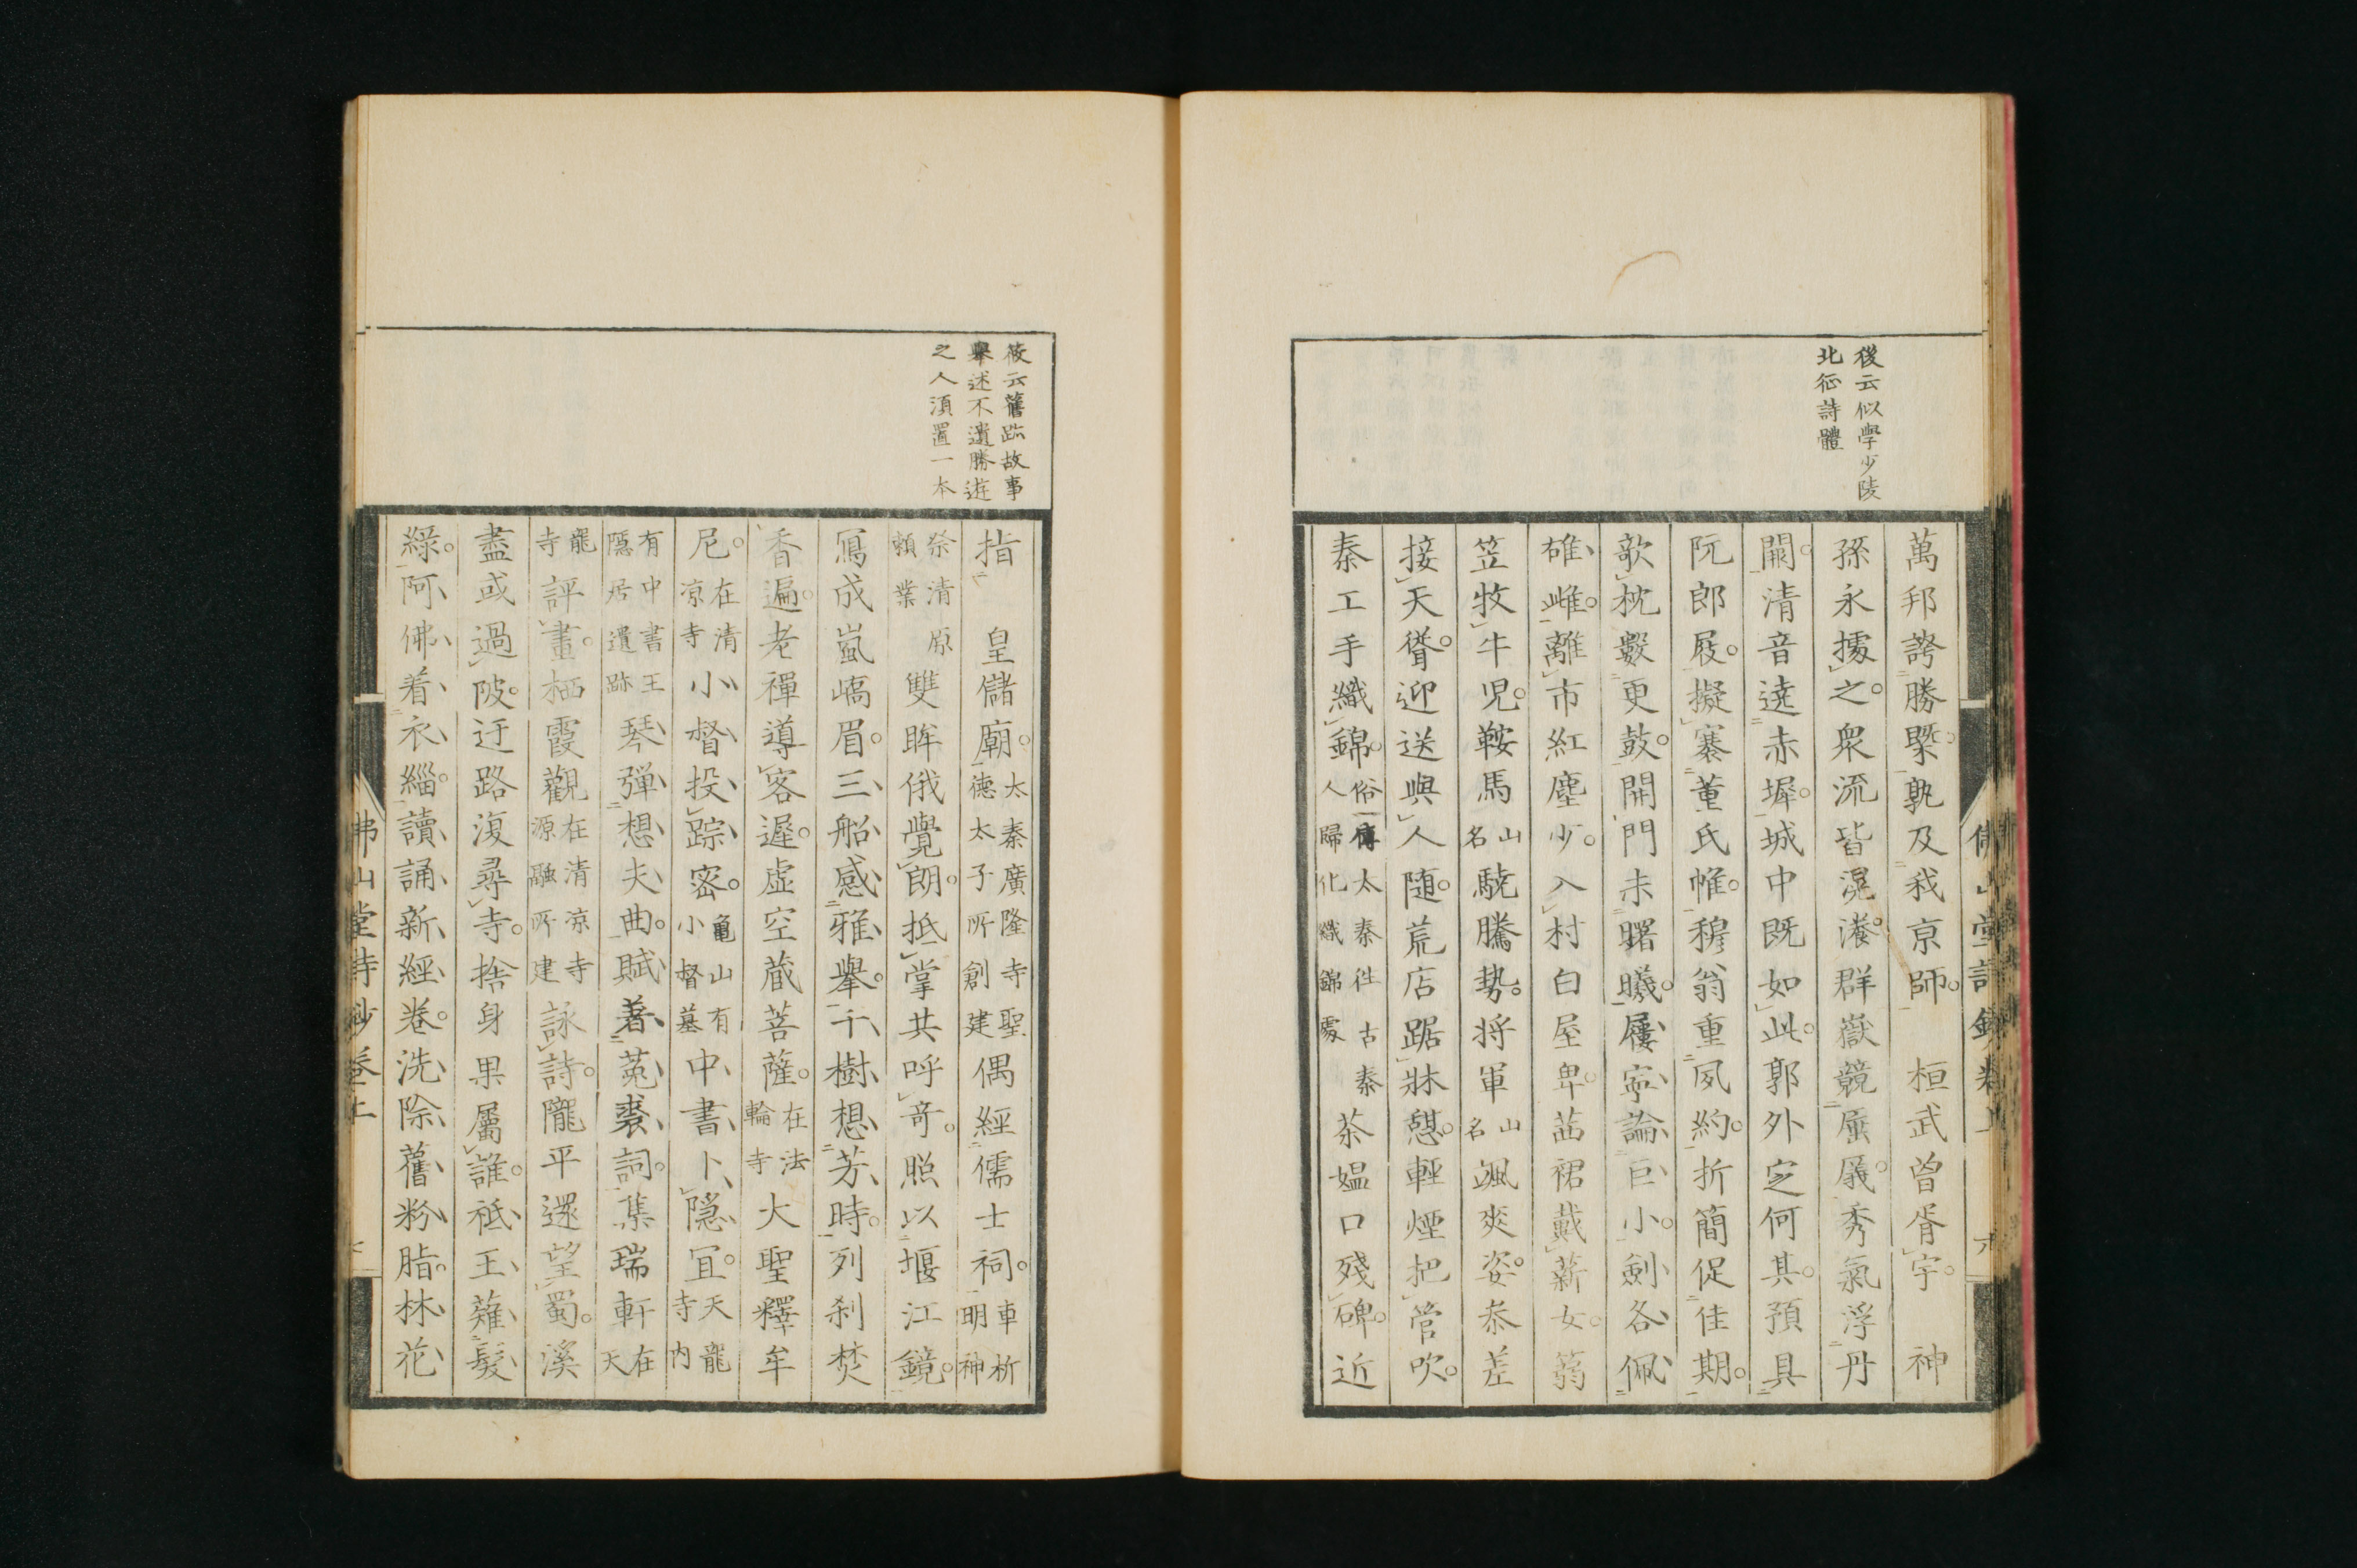 後云似學少陵
北征詩體
萬邦誇勝槩孰及我京師 桓武曾胥宇 神
孫永據之衆流皆滉瀁群嶽競屓㞒秀氣浮丹
闕清音遶赤墀城中既如此郭外定何其預具
阮郎屐擬褰董氏帷穆翁重夙約折簡促佳期
欹枕數更鼓開門未曙曦屨寧論巨小劍各佩
雄雌離市紅塵少入村白屋卑茜裙戴薪女蒻
笠牧牛児鞍馬山名驍騰勢将軍山名颯爽姿叅差
接天聳迎送與人随荒店踞牀憩輕煙把管吹
秦工手織錦俗傳太秦徃古秦人歸化織錦處茶媼口殘碑近
佛山堂詩鈔卷上
筱云舊跡故事
舉述不遺勝遊
之人須置一本
指 皇儲廟太秦廣隆寺聖德太子所創建偶經儒士祠車折明神
祭清原頼業雙眸俄覺朗抵掌共呼奇照以堰江鏡
寫成嵐嶠眉三船感雅舉千樹想芳時列刹焚
香遍老禪導客遲虛空蔵菩薩在法輪寺大聖釋牟
尼在清凉寺小督投踪密龜山有小督墓中書卜隠宜天龍寺内
有中書王隠居遺跡琴弾想夫曲賦著菟裘詞集瑞軒在天
龍寺評畫栖霞觀在清凉寺源融所建詠詩隴平還望蜀溪
盡或過陂迂路復尋寺捨身果屬誰祗王薙髮
綠阿佛着衣緇讀誦新經卷洗除舊粉脂林花
佛山堂詩鈔卷上